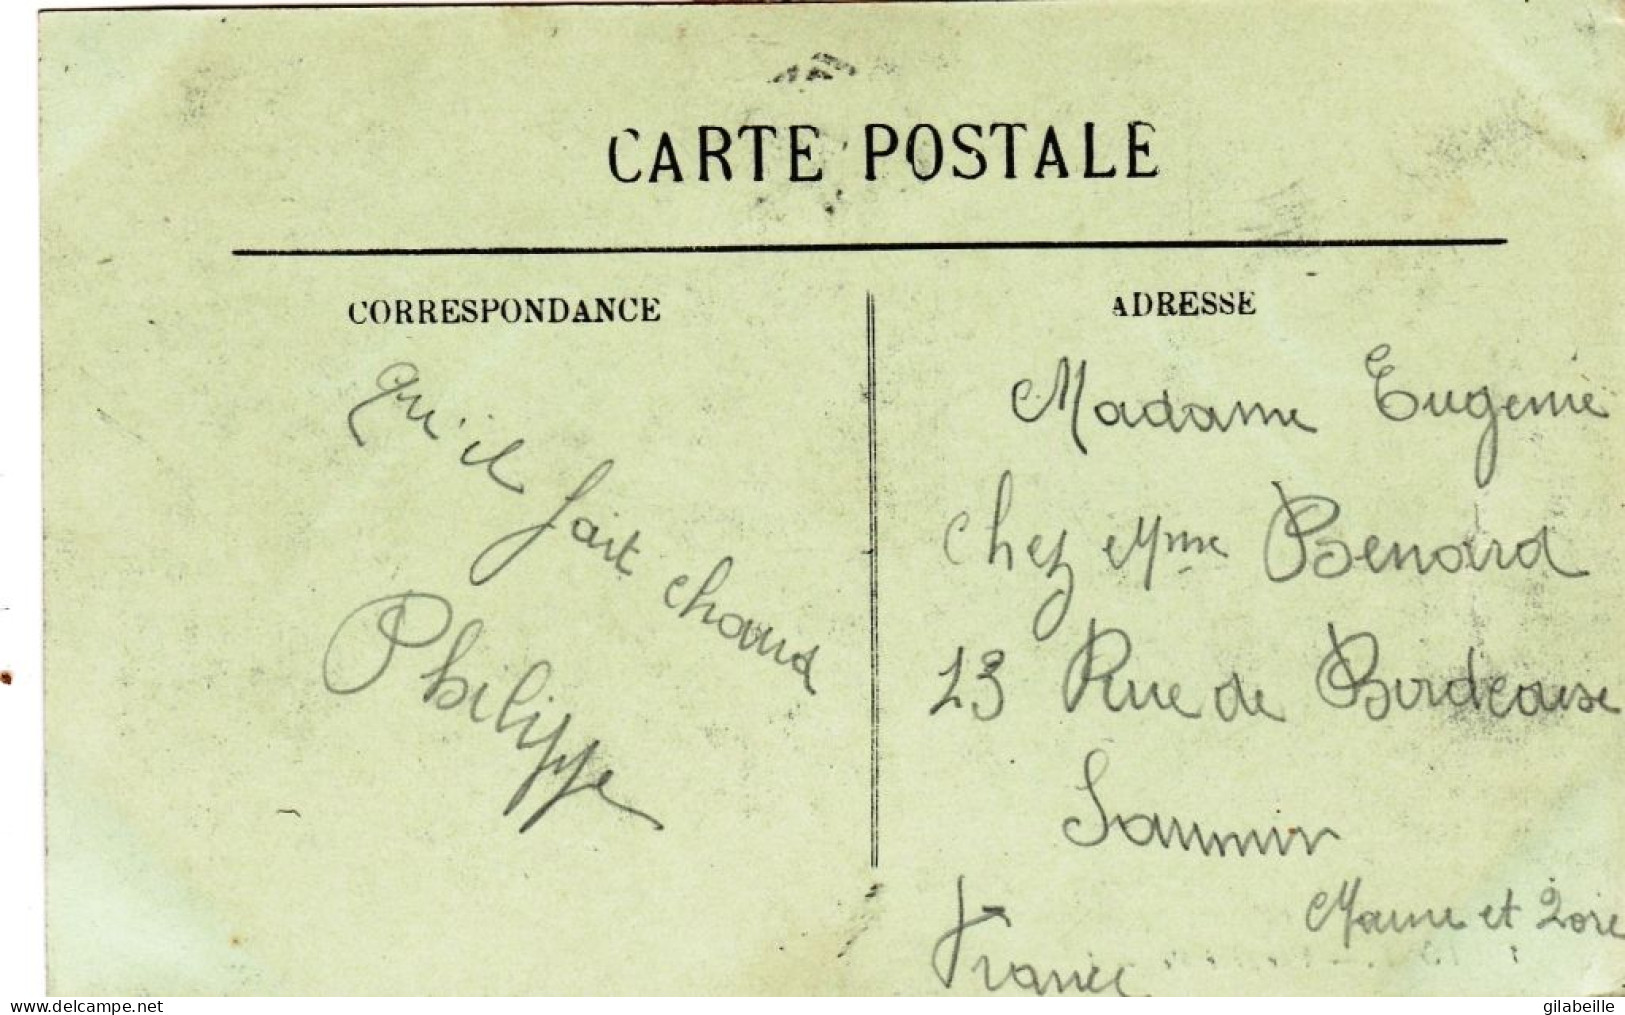 CARTE POSTALE
CORRESPONDANCE
qu'il fait chaud
Philippe
ADRESSE
Madame Eugenie
chez Mme Benard
23 Rue de Bordeause
Saumur
Maine et Loire
France
delcampe.net
gilabeille